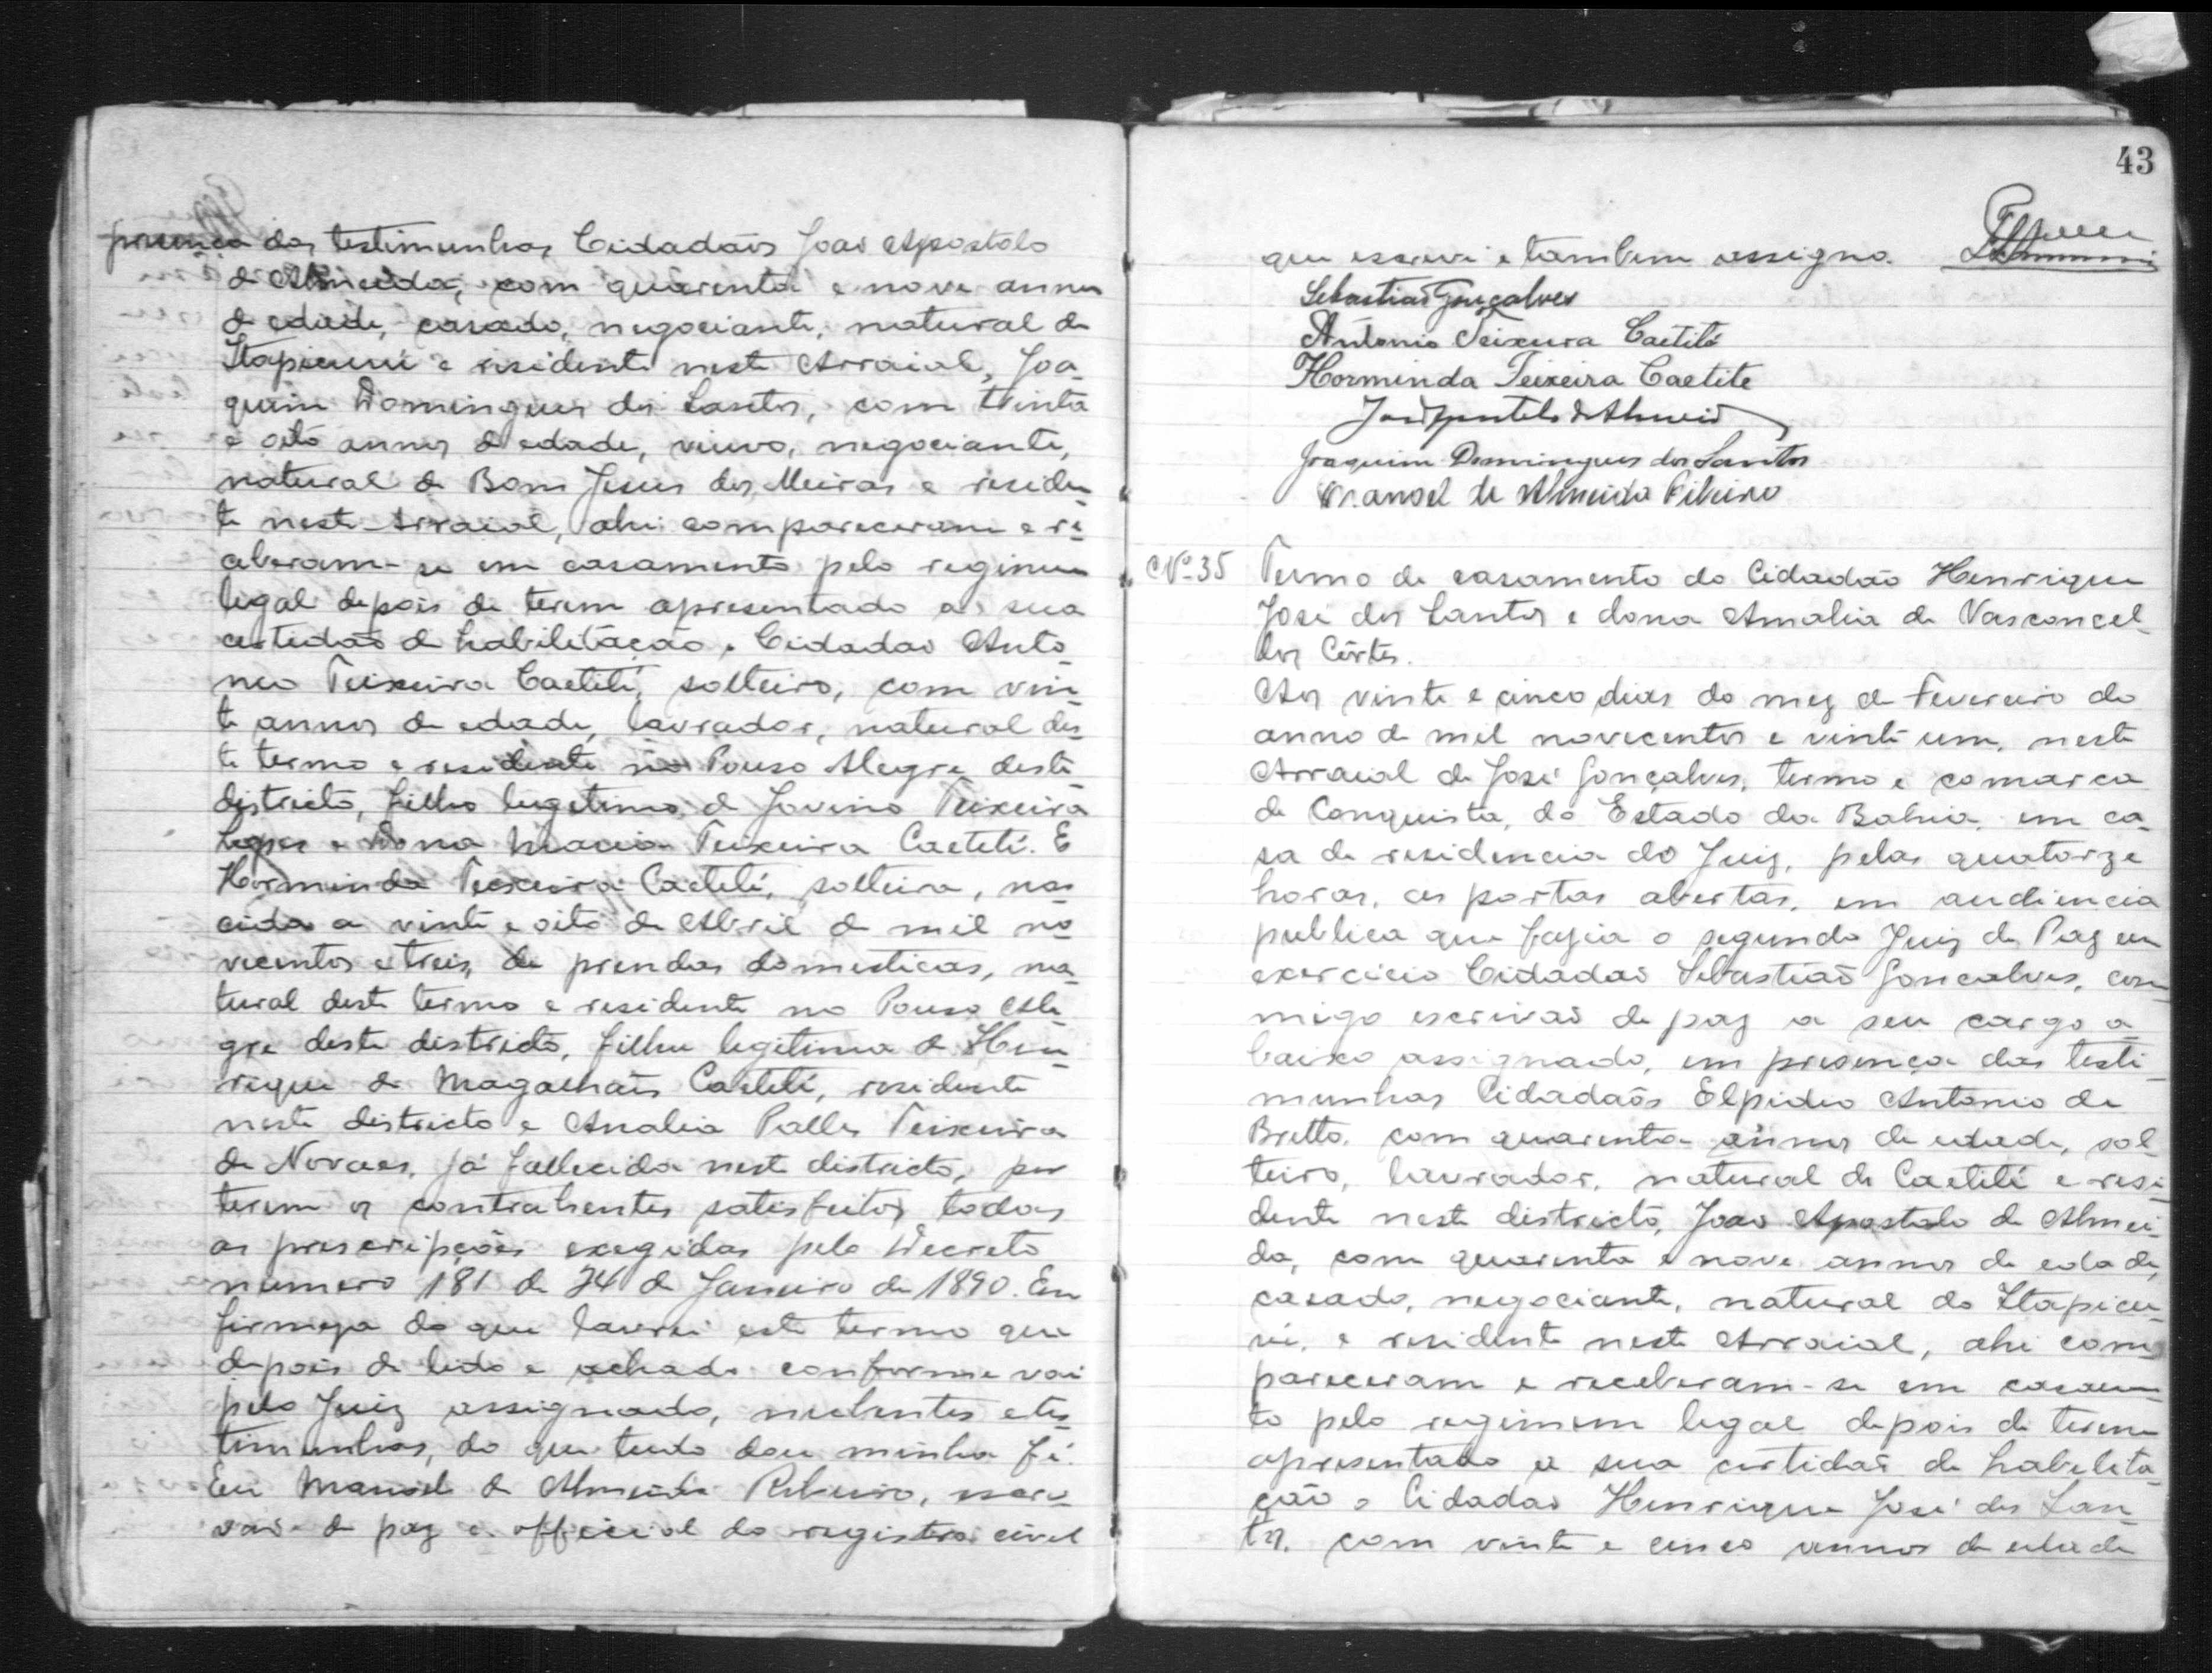 presença das testimunhas Cidadãos João Apostolo
de Almeida, com quarenta e nove annos
de edade, casado, negociante, natural de
Itapicuru e residente neste Arraial, Joa-
quim Domingues dos Santos, com trinta
e oito annos de edade, viuvo, negociante,
natural de Bom Jesus dos Meiras e residen-
te neste Arraial, ahi compareceram e re-
ceberam-se em casamento pelo regimen
legal depois de terem apresentado a sua
certidão de habilitação o Cidadão Anto-
nio Teixeira Caetité, solteiro, com vin-
te annos de edade, lavrador, natural des-
te termo e residente no Pouso Alegre deste
districto, filho legitimo de Jovino Teixeira
Lopes e Dona Maria Teixeira Caeteté. E
Horminda Teixeira Caeteté, solteira, nas-
cida a vinte e oito de Abril de mil no-
vecentos e treis, de prendas domesticas, na-
tural deste termo e residente no Pouso Ale-
gre deste districto, filha legitima de Hen-
rique de Magalhães Caeteté, residente
neste districto e Analia Palles Teixeira
de Novaes, já fallecida neste districto, por
terem os contrahentes satisfeitos todas
as prescripções exegidas pelo Decreto
numero 181 de 24 de Janeiro de 1890. Em
firmeza do que lavrei este termo que
depois de lido e achado conforme vai
pelo Juiz assignado, nubentes e tes-
timunhas, do que tudo dou minha fé.
Eu Manoel de Almeida Ribeiro, escri-
vão de paz e official do registro civel
43
que escrevi e tambem assigno.
Sebastião Gonçalves
Antonio Teixeira Caetité
Horminda Teixeira Caetite
João Apostolo d'Almeida
Joaquim Domingues dos Santos
Manoel de Almeida Ribeiro
Nº 35 Termo de casamento do Cidadão Henrique
José dos Santos e dona Amalia de Vasconcel-
los Côrtes.
Aos vinte e cinco dias do mez de Fevereiro do
anno de mil novecentos e vinte um, neste
Arraial de José Gonçalves, termo e comarca
de Conquista, do Estado da Bahia, em ca-
sa de residencia do Juiz, pelas quatorze
horas, as portas abertas, em audiencia
publica que fazia o segundo Juiz de Paz em
exercicio Cidadão Sebastião Gonçalves, com-
migo escrivão de paz a seu cargo a-
baixo assignado, em presença das testi-
munhas Cidadãos Elpidio Antonio de
Britto, com quarenta annos de edade, sol-
teiro, lavrador, natural de Caetité e resi-
dente neste districto, João Apostolo de Almei-
da, com quarenta e nove annos de edade,
casado, negociante, natural do Itapicu-
rú, e residente neste Arraial, ahi com-
pareceram e receberam-se em casamen-
to pelo regimem legal depois de terem
apresentado a sua certidão de habelita-
ção o Cidadão Henrique José dos San-
tos, com vinte e cinco annos de edade